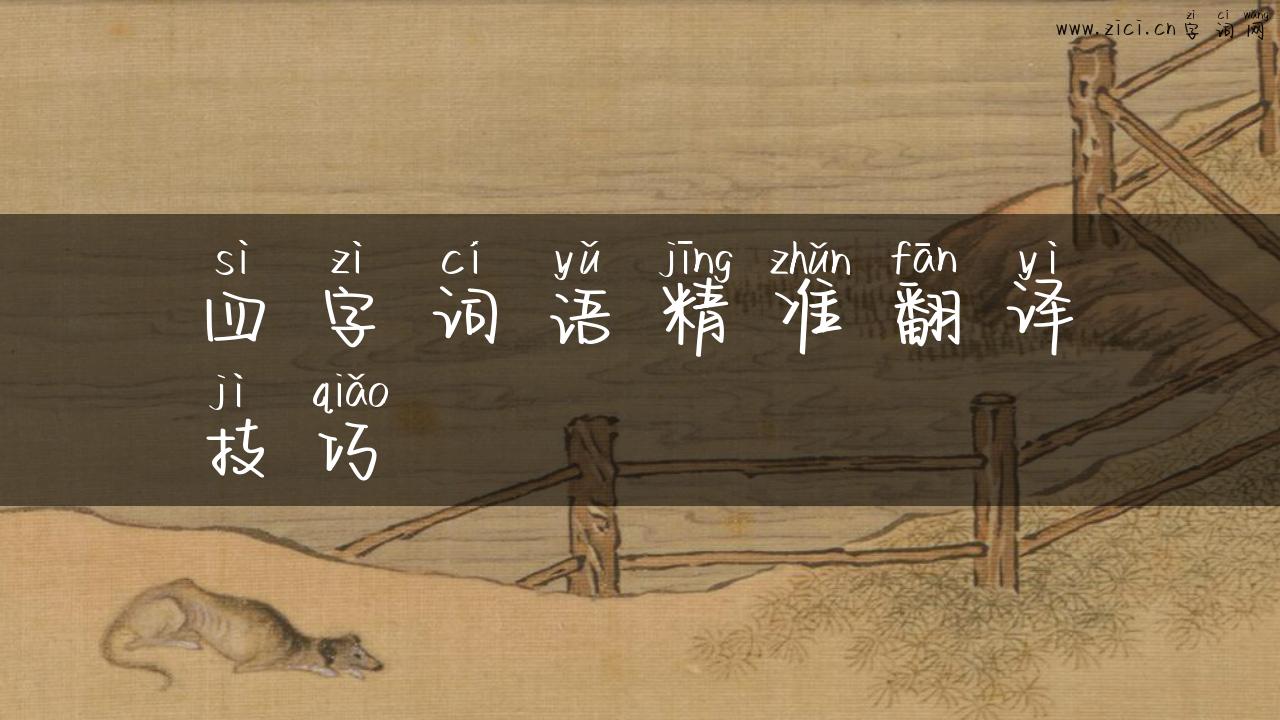 zì cí wǎng
www.zici.cn字词网
sì zì cí yǔ jīng zhǔn fān yì
四字词语精准翻译
jì qiǎo
技巧